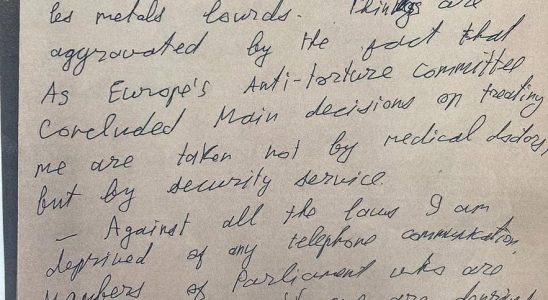 les metals lourds. Things are
aggravated by the fact that
As Europe's Anti-torture Committee
Concluded Main decisions on treating
me are taken not by medical doctors,
but by security service.
– Against all the laws I am
deprived of any telephone communication,
Members of Parliament who are